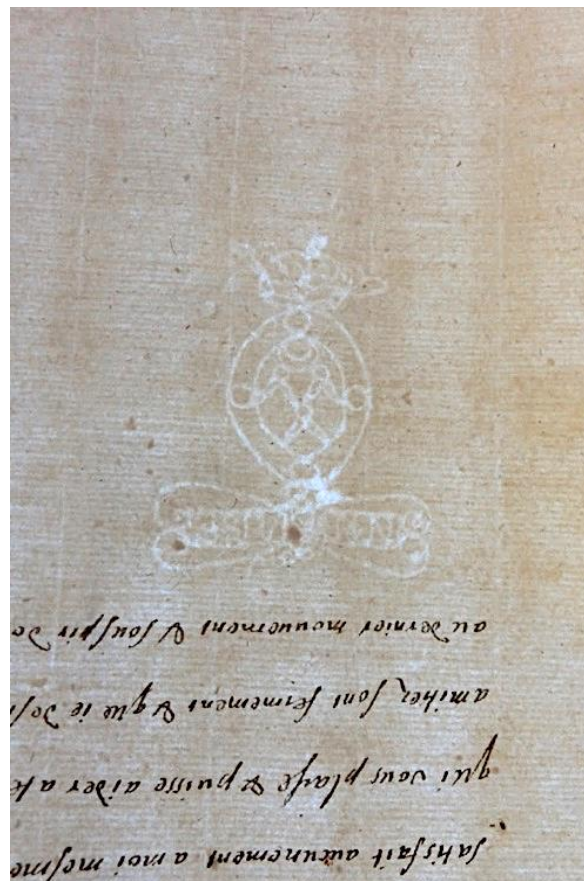 satisfait aucunement a moi mesme
qui vous plaise & puisse aider a
amitiez sont fermement & que ie
au dernier mouuement & souspir de